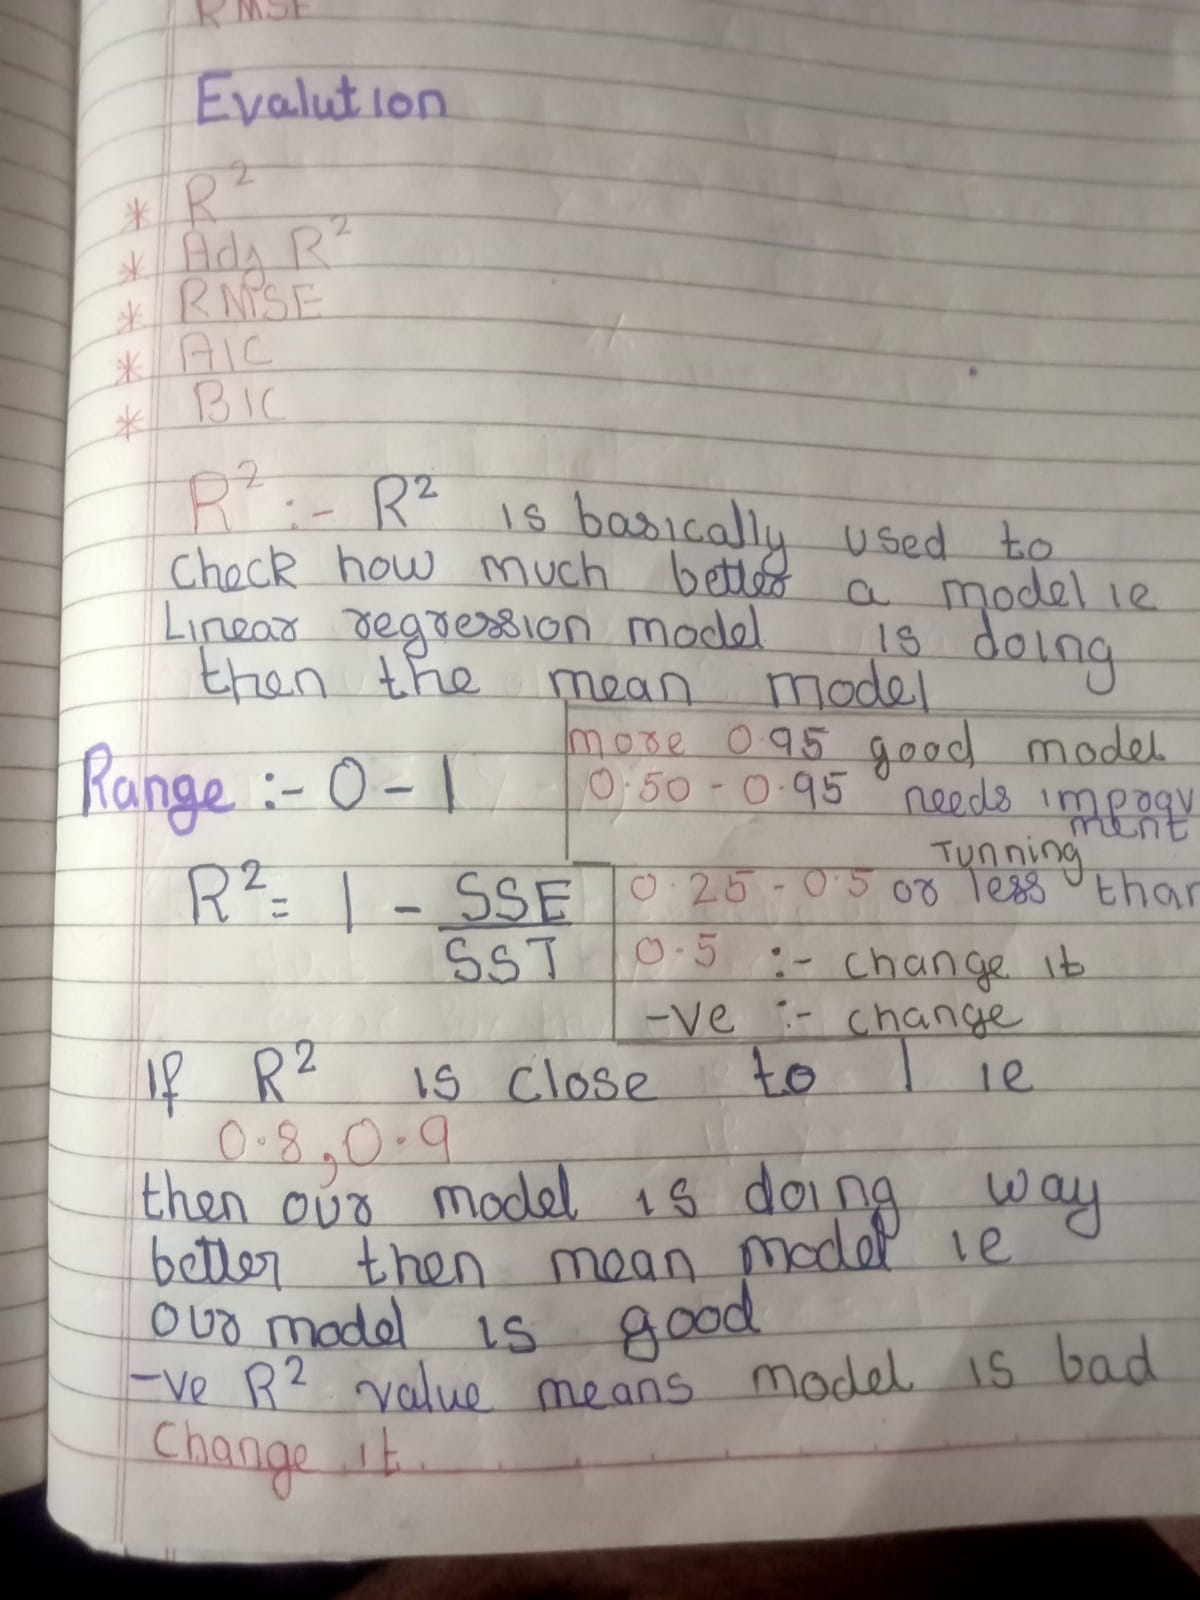 RMSE
Evalution
* R²
* Adj R²
* RMSE
* AIC
* BIC
R² :- R² is basically used to
check how much better a model ie
Linear regression model is doing
then the mean model
more 0.95 good model
Range :- 0 - 1
0.50 - 0.95 needs improv
ment
Tunning
R² = 1 - SSE
SST
0.25 - 0.5 or less than
0.5 :- change it
-ve :- change
If R² is close to 1 ie
0.8, 0.9
then our model is doing way
better then mean model ie
our model is good
-ve R² value means model is bad
Change it.